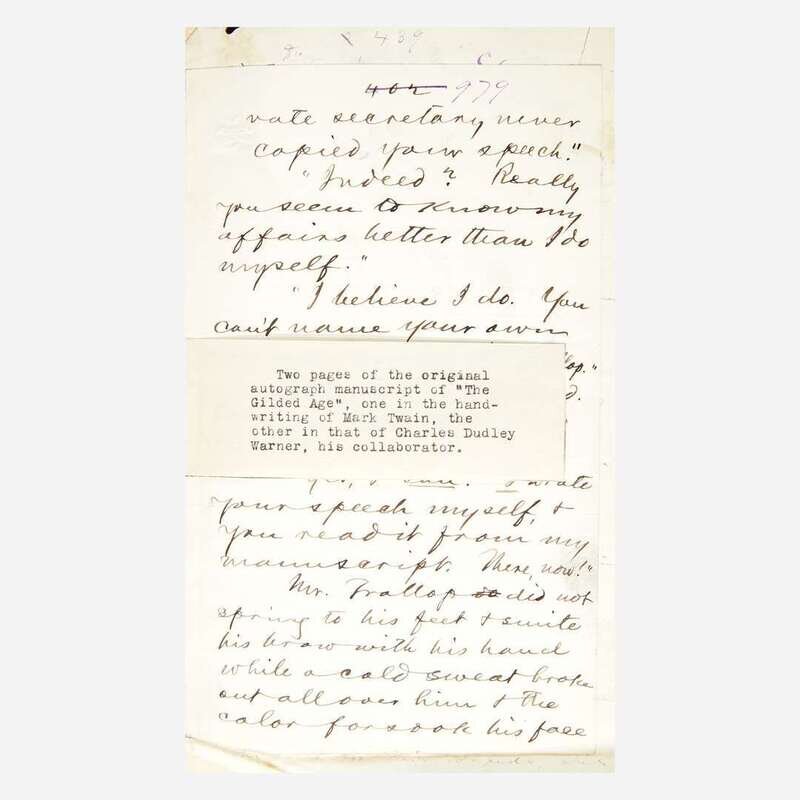 439
402 979
vate secretary never
copied your speech."
"Indeed? Really
you seem to know my
affairs better than I do
myself."
"I believe I do. You
can't name your own
lop."
d.
Two pages of the original
autograph manuscript of "The
Gilded Age", one in the hand-
writing of Mark Twain, the
other in that of Charles Dudley
Warner, his collaborator.
I wrote
your speech myself, &
you read it from my
manuscript. There, now!"
Mr. Trollop did not
spring to his feet & smite
his brow with his hand
while a cold sweat broke
out all over him & the
color forsook his face